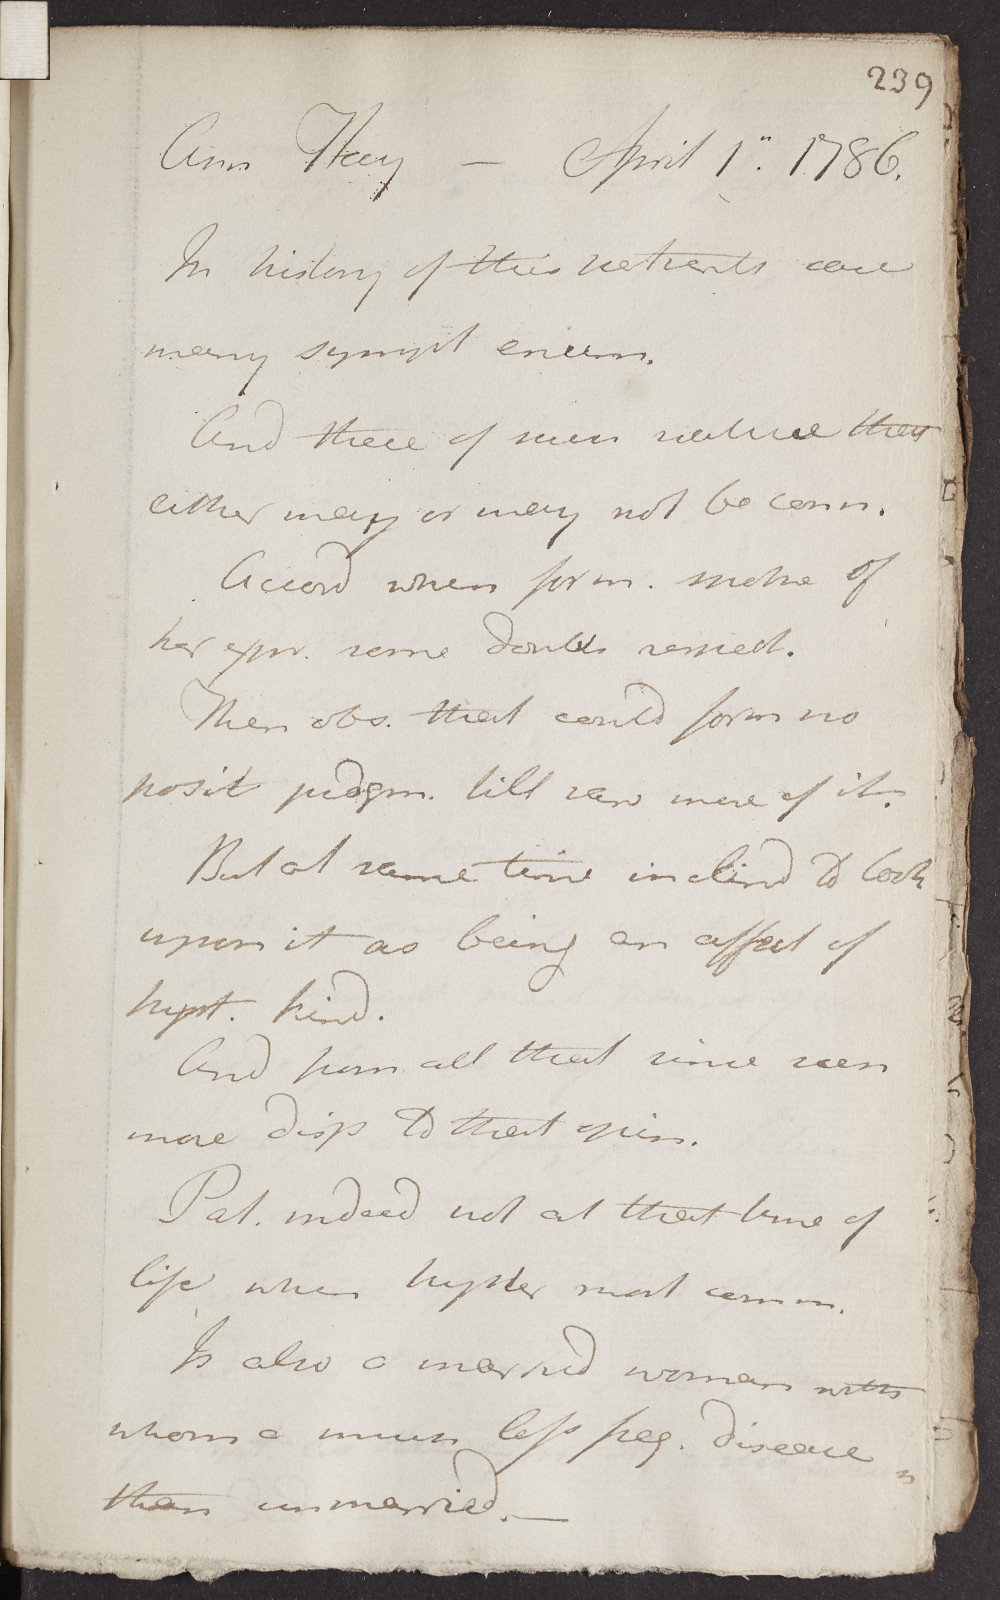 239
Ann Hay — April 1". 1786.
In history of this patients case
many sympt enum.
And these of such nature they
either may or may not be conn.
Accord when form. spoke of
her expr. some doubts respect.
Then obs. that could form no
posit judgm. till saw more of it.
But at same time inclind to look
upon it as being an affect of
hyst. kind.
And from all that since seen
more disp to that opin.
Pat. indeed not at that time of
life when hyster most comm.
Is also a married woman with
whom a much less freq. disease
than unmarried. —